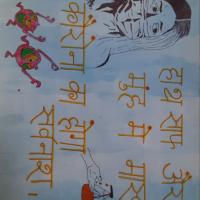 हाथ साफ और
मुंह में मास्
कोरोना का होगा
सर्वनाश।